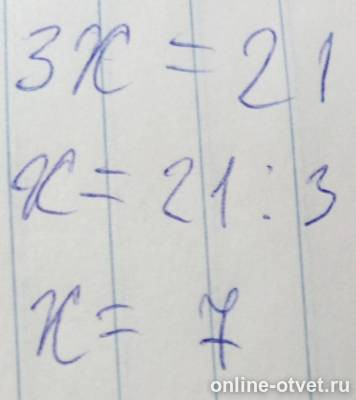 3x = 21
x = 21 : 3
x = 7
online-otvet.ru